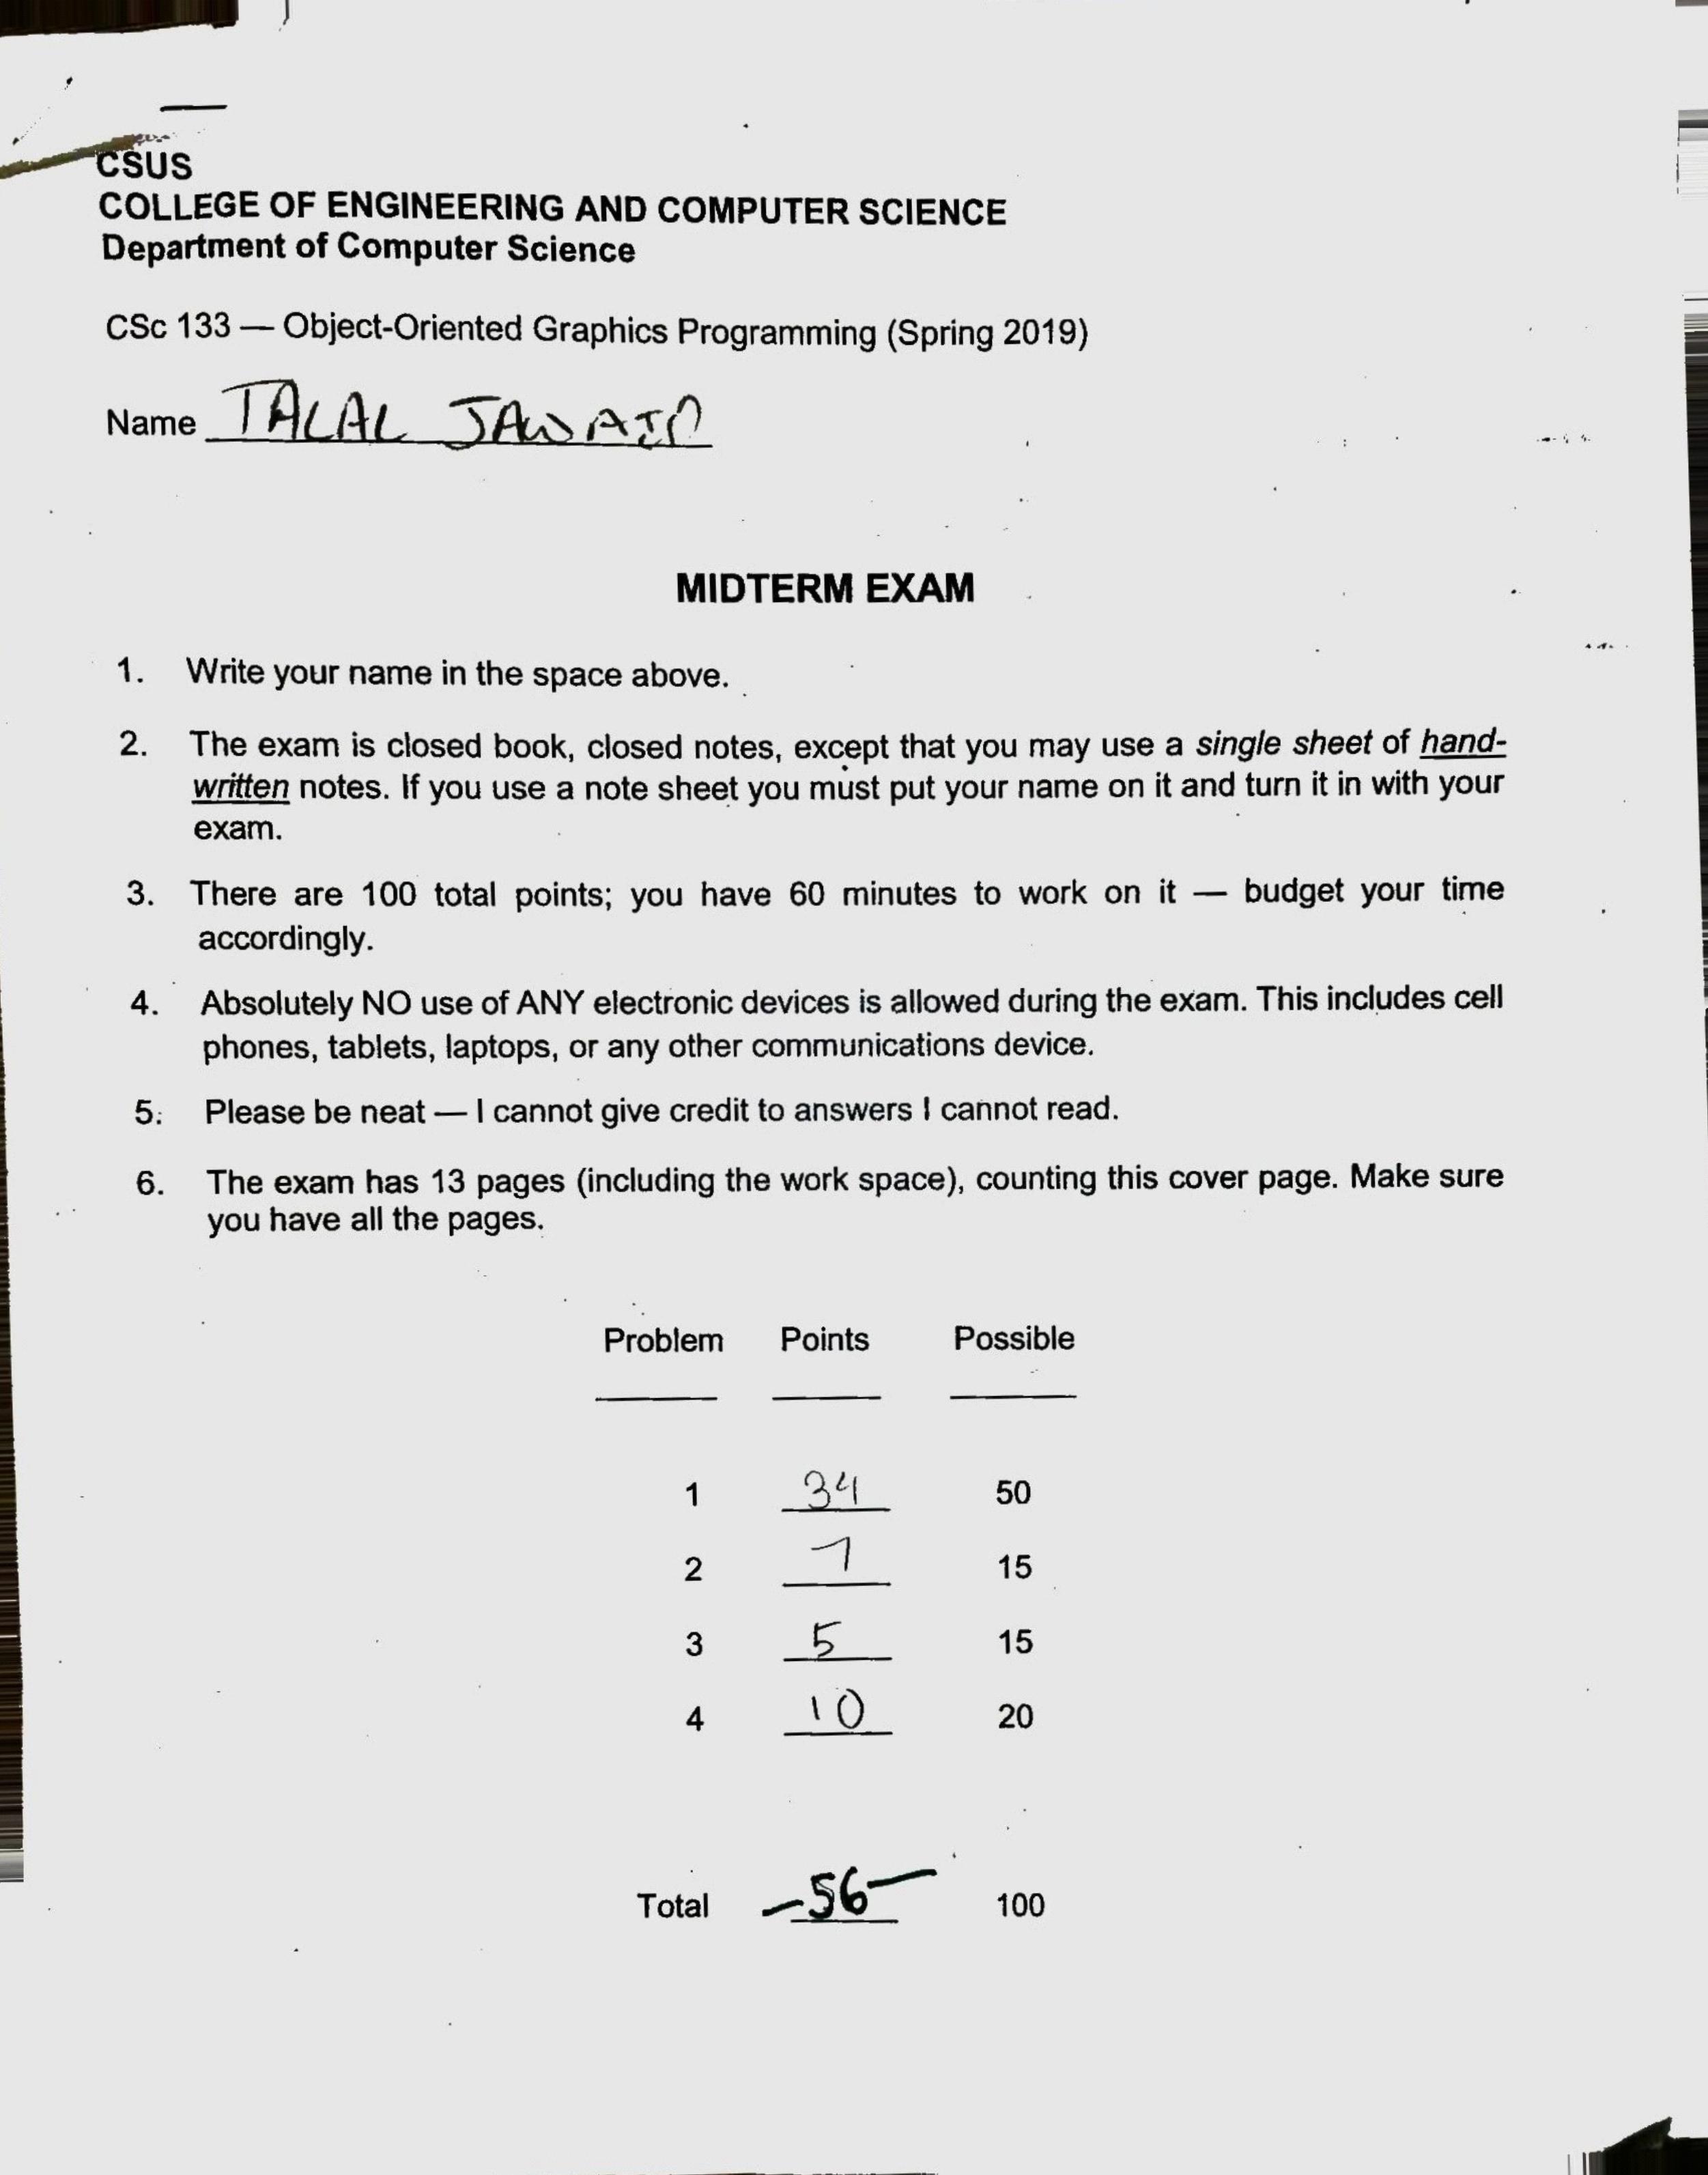 CSUS
COLLEGE OF ENGINEERING AND COMPUTER SCIENCE
Department of Computer Science
CSc 133 — Object-Oriented Graphics Programming (Spring 2019)
Name TALAL JAWAID
MIDTERM EXAM
1. Write your name in the space above.
2. The exam is closed book, closed notes, except that you may use a single sheet of hand-
written notes. If you use a note sheet you must put your name on it and turn it in with your
exam.
3. There are 100 total points; you have 60 minutes to work on it — budget your time
accordingly.
4. Absolutely NO use of ANY electronic devices is allowed during the exam. This includes cell
phones, tablets, laptops, or any other communications device.
5. Please be neat — I cannot give credit to answers I cannot read.
6. The exam has 13 pages (including the work space), counting this cover page. Make sure
you have all the pages.
Problem Points Possible
1 34 50
2 7 15
3 5 15
4 10 20
Total 56 100